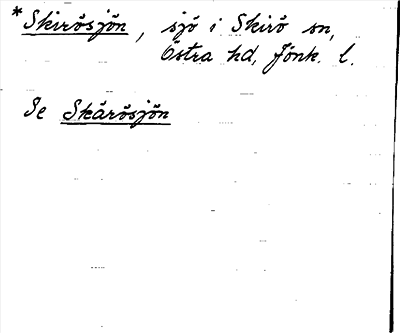 *Skirösjön, sjö i Skirö sn,
Östra hd, Jönk. l.
Se Skärösjön